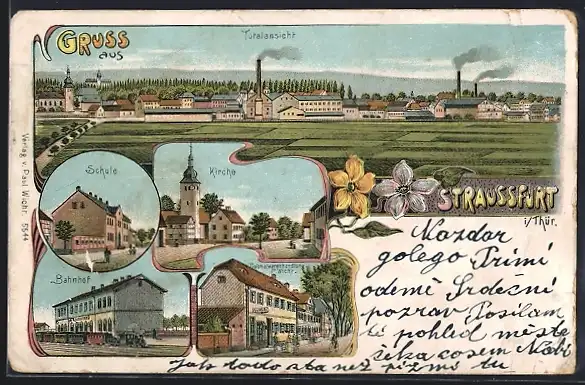 GRUSS
aus
Totalansicht
Schule
Kirche
STRAUSSFURT
i/Thür.
Bahnhof
P. Wichr.
Verlag v. Paul Wichr. 5544
Nazdar
golego Primi
odemě Srdečni
pozrav Posilam
ti pohled měste
cosem
Jak toto sta než